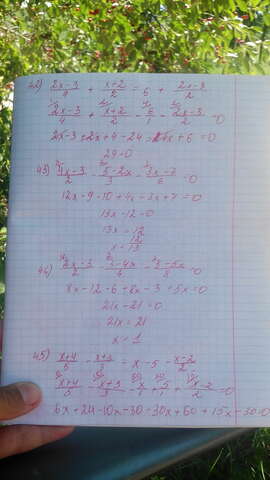 42) (2x-3)/4 + (x+2)/2 = 6 + (2x-3)/2
(2x-3)/4 + (x+2)/2 - 6/1 - (2x-3)/2 = 0
2x-3+2x+4-24-4x+6=0
43) (4x-3)/2 - (5-2x)/3 - (3x-7)/6 = 0
12x-9-10+4x-3x+7=0
13x-12=0
13x=12
x=12/13
8x-12-6+8x-3+5x=0
21x-21=0
21x=21
x=1
45) (x+4)/5 - (x+3)/3 = x-5-(x-2)/2
(x+4)/5 - (x+3)/3 - x/1 + 5/1 + (x-2)/2 = 0
6x+24-10x-30-30x+60+15x-30=0